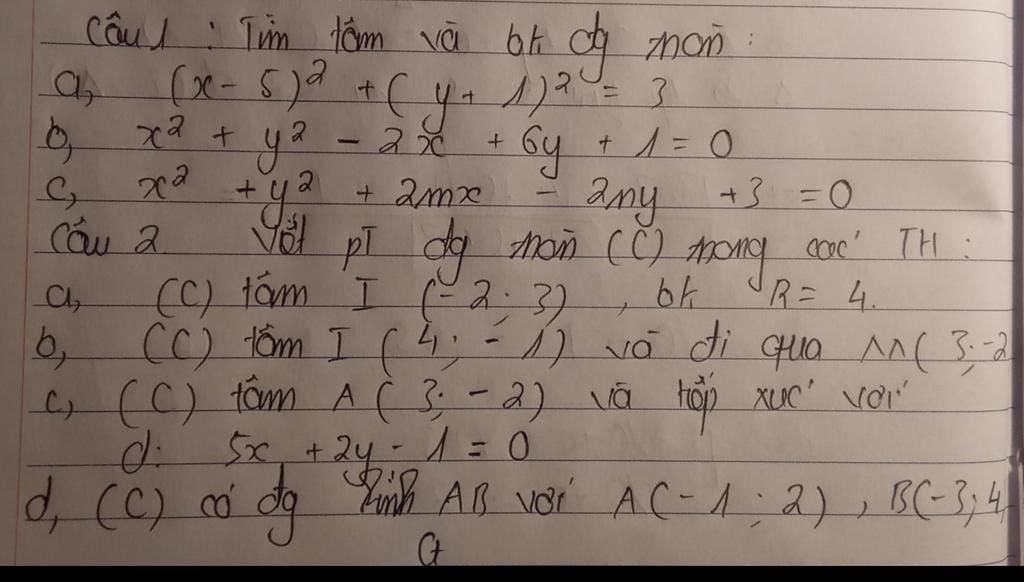 Câu 1 : Tìm tâm và bk đg tròn :
a, (x - 5)² + (y + 1)² = 3
b, x² + y² - 2x + 6y + 1 = 0
c, x² + y² + 2mx - 2ny + 3 = 0
Câu 2 Viết pt đg tròn (C) trong các TH :
a, (C) tâm I (-2 ; 3) , bk R = 4.
b, (C) tâm I (4 ; -1) và đi qua M (3 ; -2
c, (C) tâm A (3 ; -2) và tiếp xúc với
d: 5x + 2y - 1 = 0
d, (C) có đg kính AB với A(-1 ; 2) , B(-3 ; 4